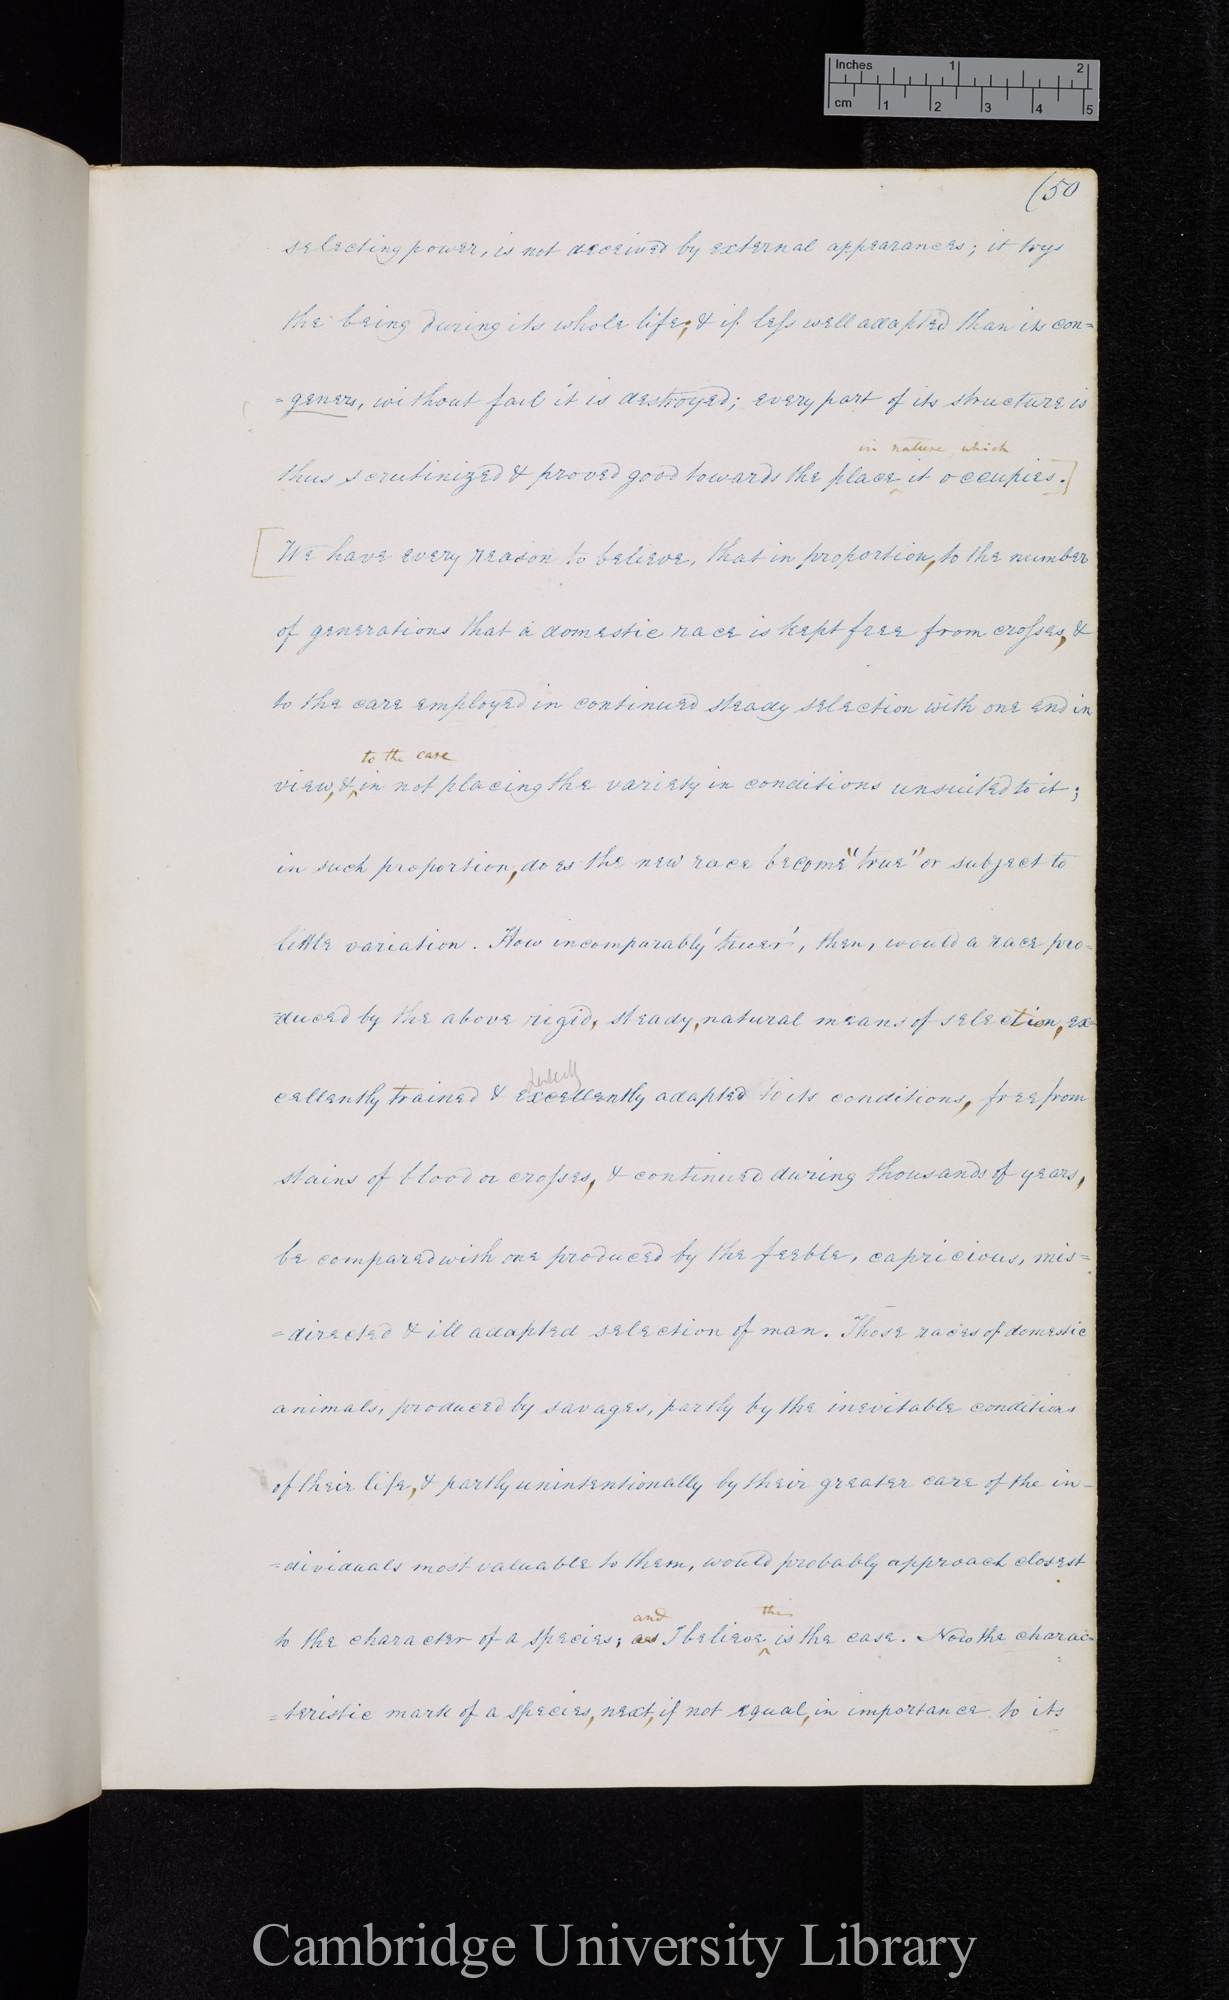 Inches 1 2
cm 1 2 3 4 5
(50
selecting power, is not deceived by external appearances; it trys
the being during its whole life; & if less well adapted than its con=
=geners, without fail it is destroyed; every part of its structure is
in nature, which
thus scrutinized & proved good towards the place it occupies.]
[We have every reason to believe, that in proportion, to the number
of generations that a domestic race is kept free from crosses, &
to the care employed in continued steady selection with one end in
to the care
view, & in not placing the variety in conditions unsuited to it;
in such proportion, does the new race become "true" or subject to
little variation. How incomparably 'truer', then, would a race pro=
=duced by the above rigid, steady, natural means of selection, ex=
cellently trained & excellently adapted to its conditions, free from
stains of blood or crosses, & continued during thousands of years,
be compared with one produced by the feeble, capricious, mis=
=directed & ill adapted selection of man. Those races of domestic
animals, produced by savages, partly by the inevitable conditions
of their life, & partly unintentionally by their greater care of the in=
=dividuals most valuable to them, would probably approach closest
and this
to the character of a species; as I believe is the case. Now the charac=
=teristic mark of a species, next, if not equal, in importance to its
Cambridge University Library